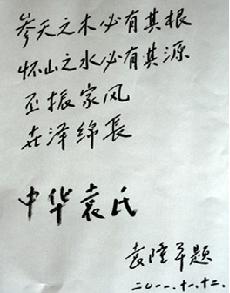 参天之木必有其根
怀山之水必有其源
丕振家风
在泽绵長
中华袁氏
袁隆平题
二〇一一.十一.十二.